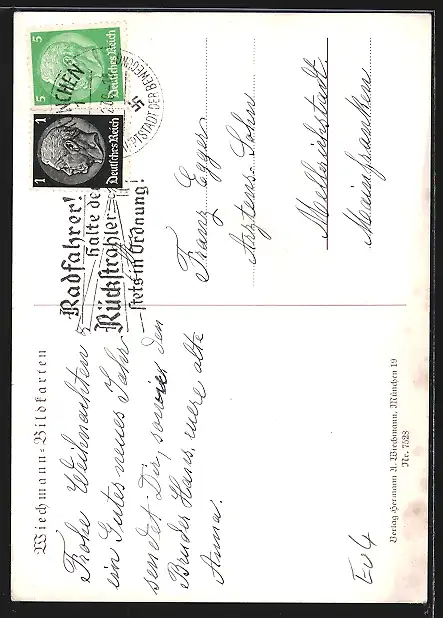 Wiechmann-Bildkarten
Frohe Weihnachten
ein Gutes neues Jahr
sendet Dir, sowie den
Bruder Hans, eure alte
Anna.
5 Deutsches Reich 5
1 Deutsches Reich 1
MÜNCHEN
HAUPTSTADT DER BEWEGUNG
Radfahrer!
Halte de
Rückstrahler
stets in Ordnung!
Franz Egger
Arztens-Sohn
Mellrichstadt.
Mainfranken
Verlag Hermann A. Wiechmann, München 19
Nr. 7528